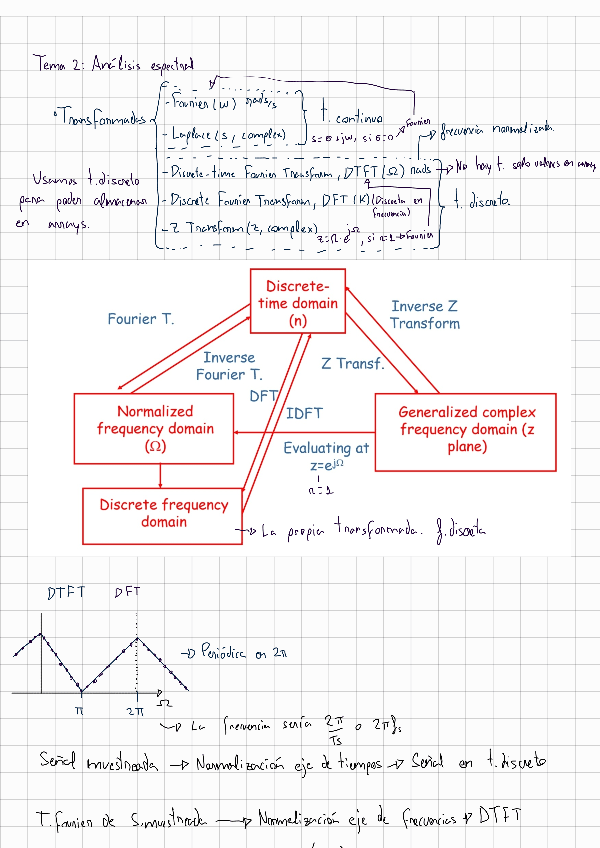 Tema 2: Análisis espectral
• Transformadas
- Fourier (w) rads/s
- Laplace (s, complex)
t. continuo
s = σ + jw, si σ=0 → Fourier
→ frecuencia normalizada.
- Discrete-time Fourier Transform, DTFT (Ω) rads → No hay t. solo valores en array
- Discrete Fourier Transform, DFT (K) (Discreta en frecuencia)
t. discreto
- Z Transform (z, complex)
z=r·e^jΩ, si r=1 → Fourier
Usamos t. discreto
para poder almacenar
en arrays.
Discrete-
time domain
(n)
Fourier T.
Inverse
Fourier T.
Inverse Z
Transform
Z Transf.
DFT
IDFT
Normalized
frequency domain
(Ω)
Generalized complex
frequency domain (z
plane)
Evaluating at
z=e^jΩ
r=1
Discrete frequency
domain
→ La propia transformada. f. discreta
DTFT DFT
→ Periódica en 2π
π 2π Ω
→ La frecuencia sería 2π/Ts o 2πfs
Señal muestreada → Normalización eje de tiempos → Señal en t. discreto
T. Fourier de S. muestreada → Normalización eje de frecuencias → DTFT